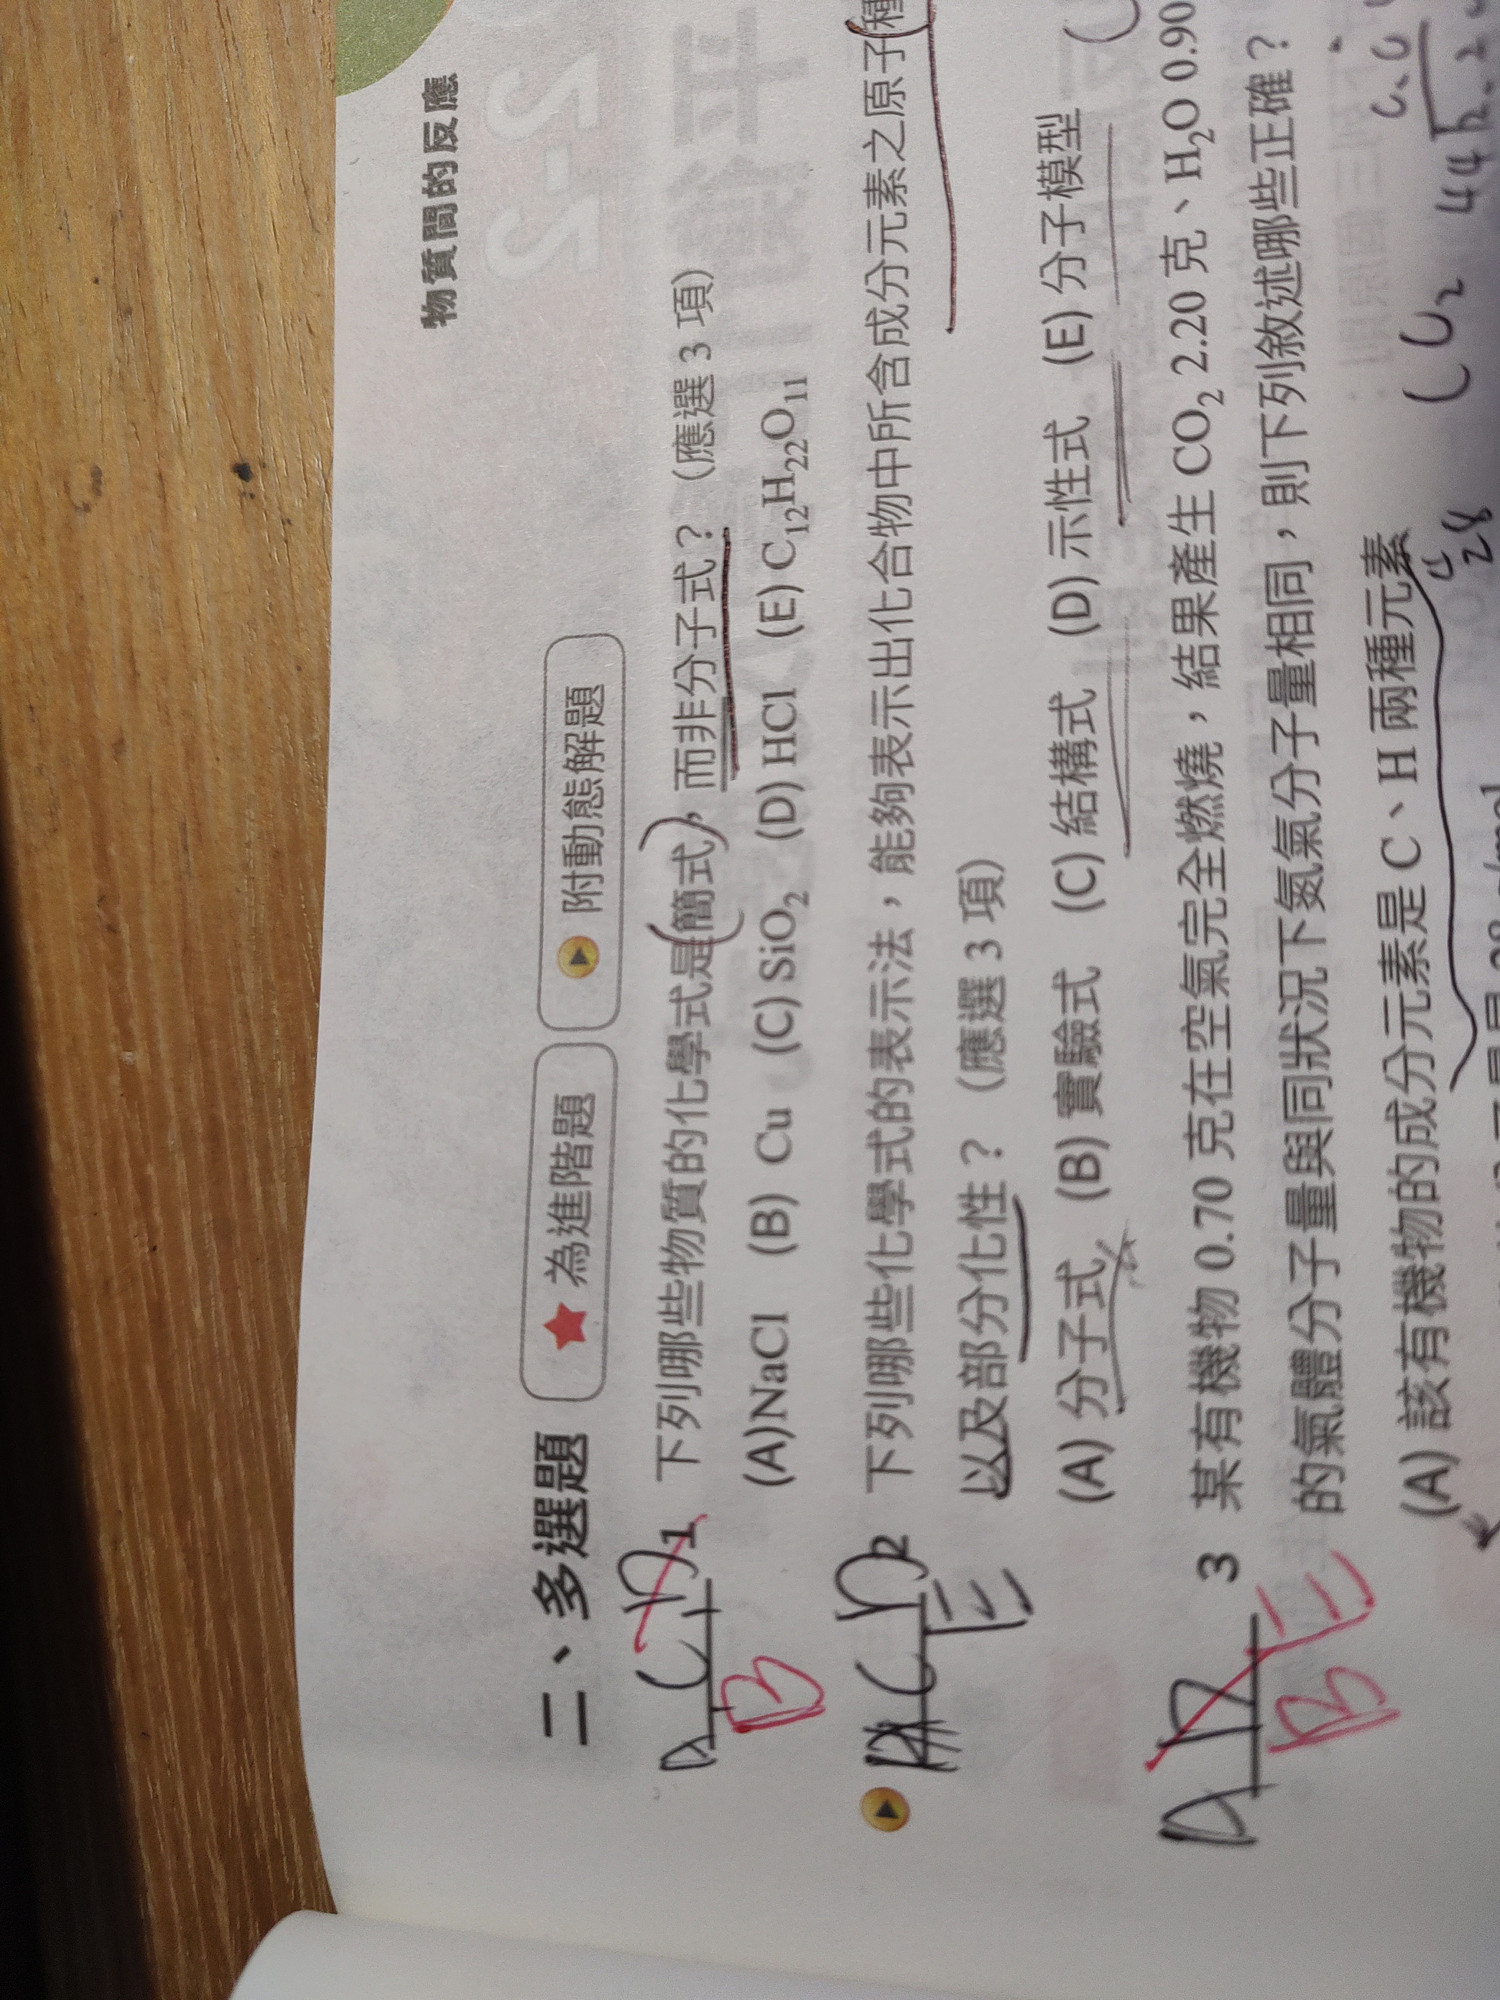 物質間的反應
二、多選題 ★ 為進階題 附動態解題
ACD 1 下列哪些物質的化學式是簡式，而非分子式？（應選 3 項）
B (A)NaCl (B) Cu (C) SiO₂ (D) HCl (E) C₁₂H₂₂O₁₁
CD 2 下列哪些化學式的表示法，能夠表示出化合物中所含成分元素之原子種
E 以及部分化性？（應選 3 項）
(A) 分子式 (B) 實驗式 (C) 結構式 (D) 示性式 (E) 分子模型
AD 3 某有機物 0.70 克在空氣完全燃燒，結果產生 CO₂ 2.20 克、H₂O 0.90
BE 的氣體分子量與同狀況下氮氣分子量相同，則下列敘述哪些正確？
(A) 該有機物的成分元素是 C、H 兩種元素
28
44